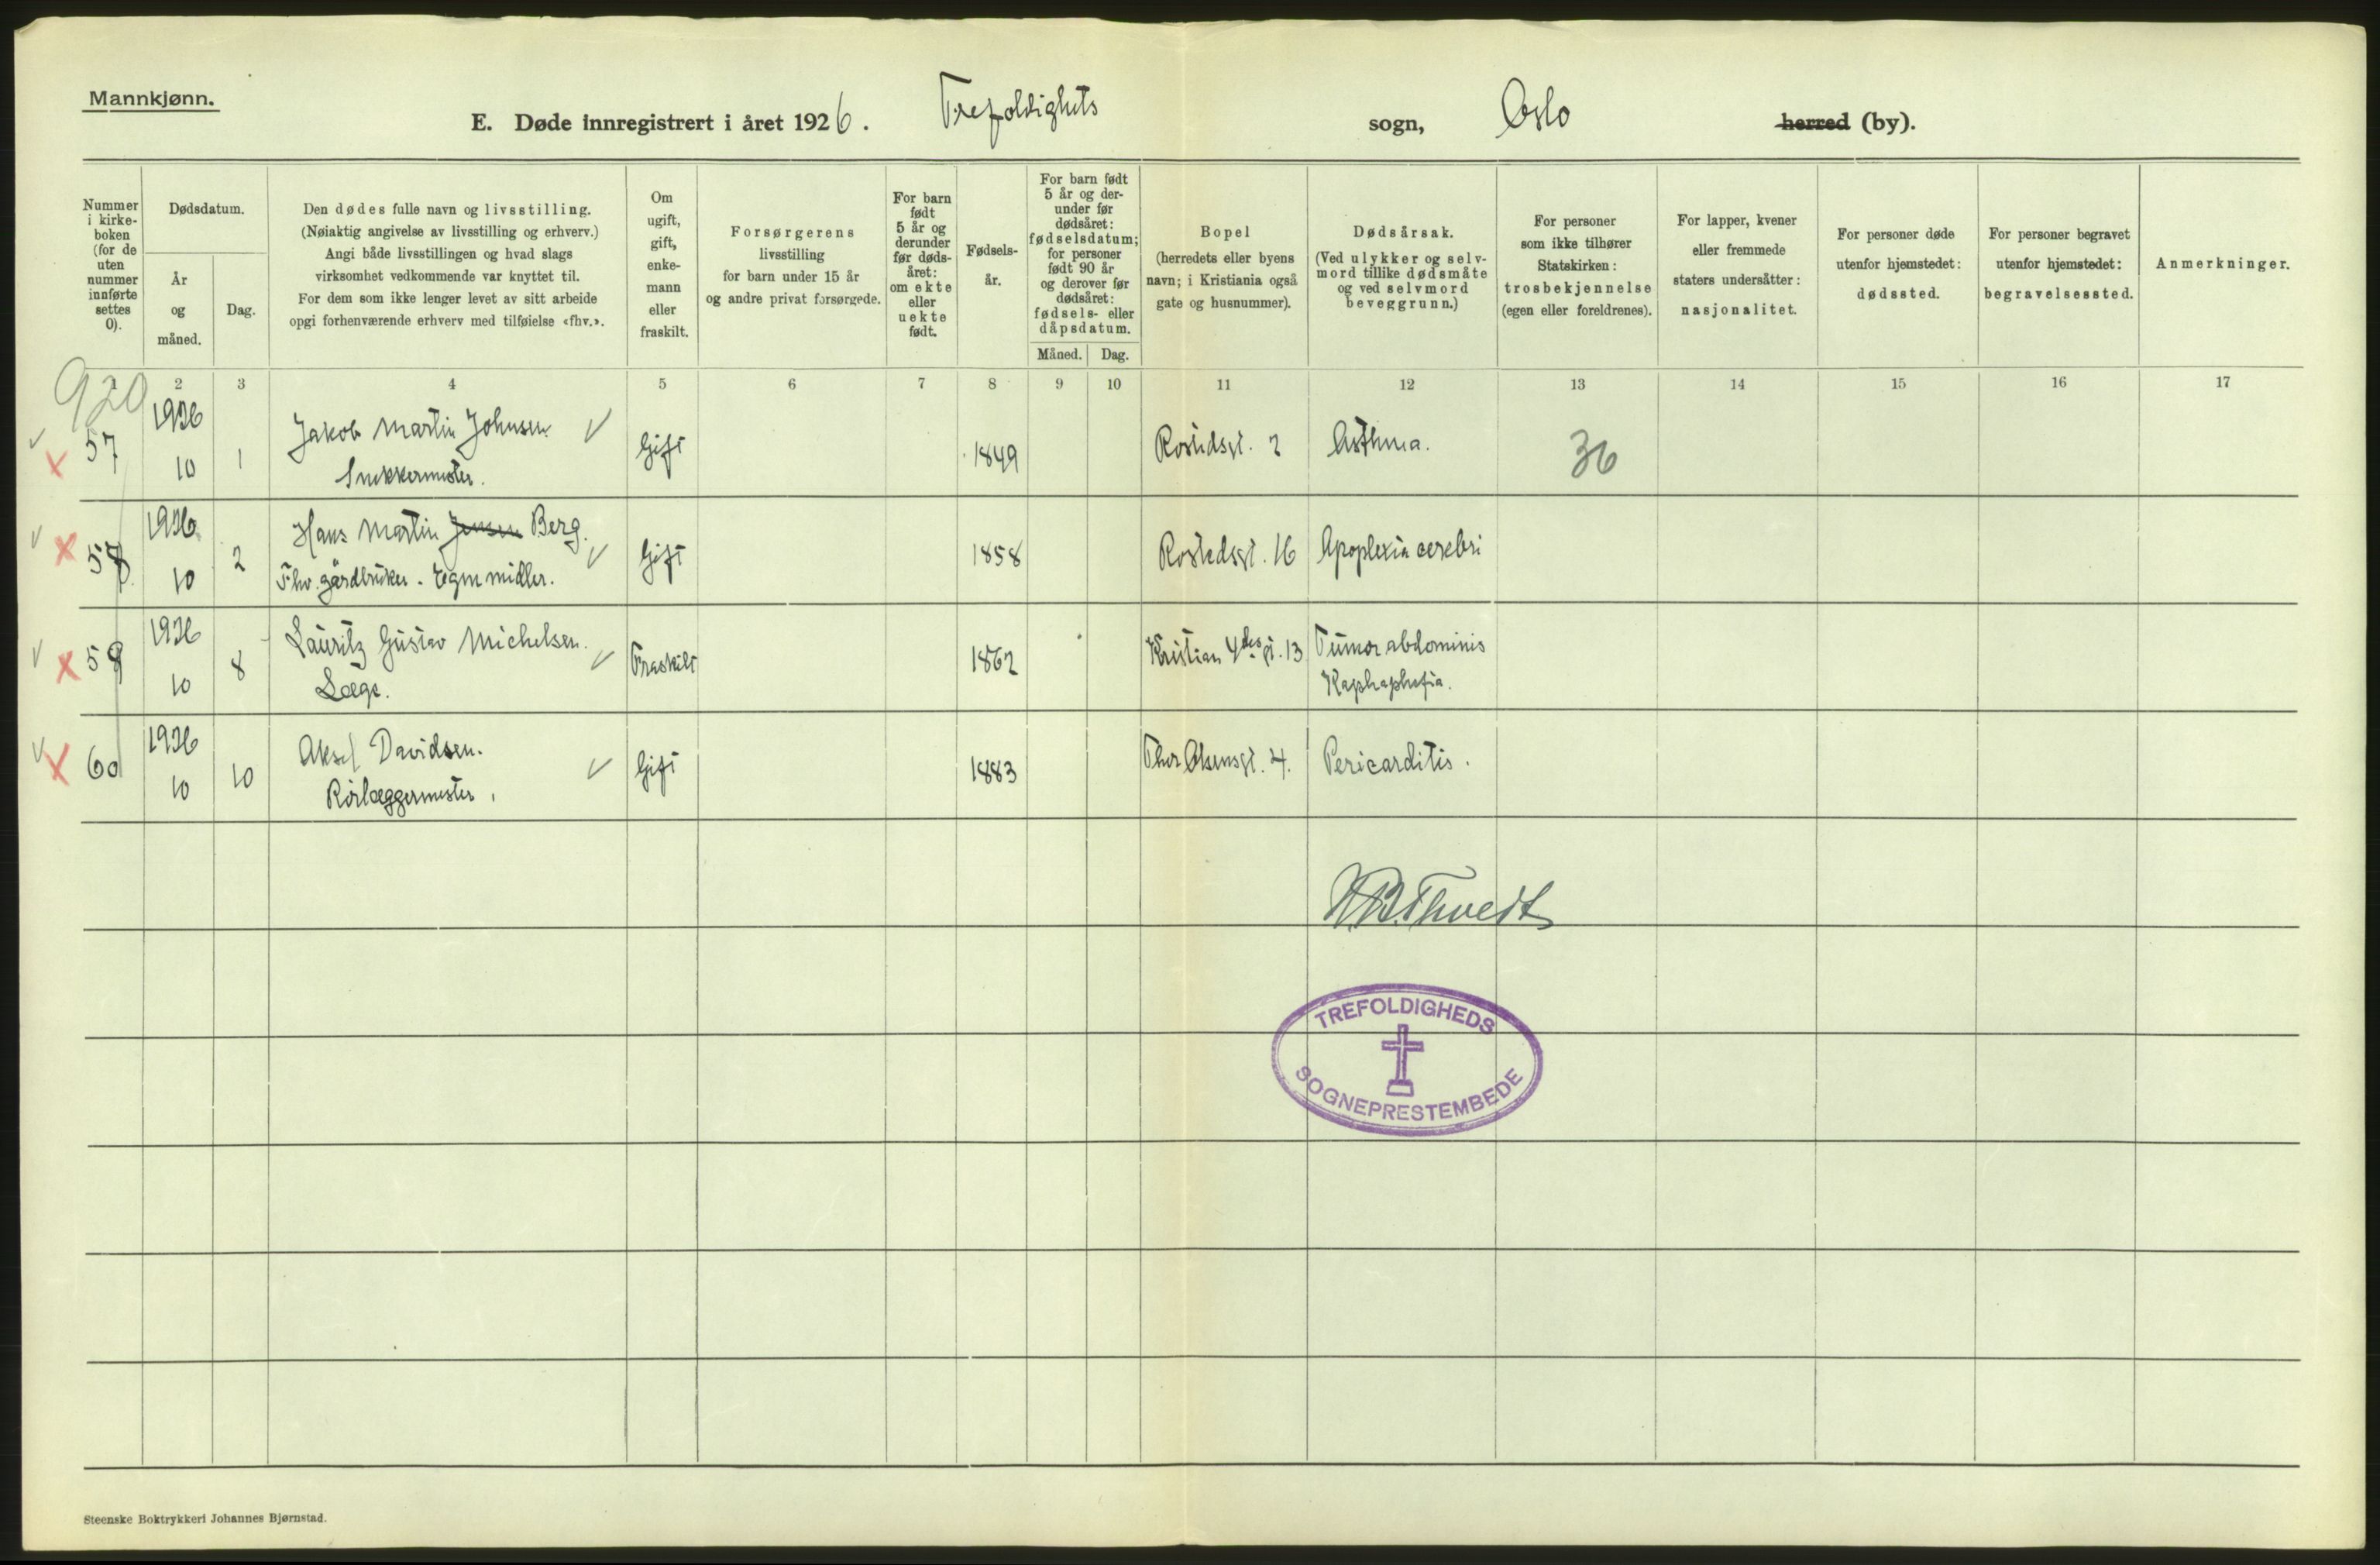 Mannkjønn.
E. Døde innregistrert i året 1926. Trefoldighets sogn, Oslo herred (by).
Nummer i kirke-boken (for de uten nummer innførte settes 0).
Dødsdatum.
År og måned.
Dag.
Den dødes fulle navn og livsstilling.
(Nøiaktig angivelse av livsstilling og erhverv.)
Angi både livsstillingen og hvad slags
virksomhet vedkommende var knyttet til.
For dem som ikke lenger levet av sitt arbeide
opgi forhenværende erhverv med tilføielse «fhv.».
Om ugift, gift, enke-mann eller fraskilt.
Forsørgerens
livsstilling
for barn under 15 år
og andre privat forsørgede.
For barn født 5 år og derunder før døds-året: om ekte eller uekte født.
Fødsels-år.
For barn født 5 år og der-under før dødsåret: fødselsdatum; for personer født 90 år og derover før dødsåret: fødsels- eller dåpsdatum.
Måned. Dag.
Bopel
(herredets eller byens
navn; i Kristiania også
gate og husnummer).
Dødsårsak.
(Ved ulykker og selv-
mord tillike dødsmåte
og ved selvmord
beveggrunn.)
For personer
som ikke tilhører
Statskirken:
trosbekjennelse
(egen eller foreldrenes).
For lapper, kvener
eller fremmede
staters undersåtter:
nasjonalitet.
For personer døde
utenfor hjemstedet:
dødssted.
For personer begravet
utenfor hjemstedet:
begravelsessted.
Anmerkninger.
1 2 3 4 5 6 7 8 9 10 11 12 13 14 15 16 17
920
57 1926 10 1 Jakob Martin Johnsen Gift 1849 Rostedsgt. 2 Asthma. 36
Snekkermester.
58 1926 10 2 Hans Martin Jensen Berg. Gift 1858 Rostedsgt. 16 Apoplexia cerebri
Fhv. gårdbruker. Egne midler.
59 1926 10 8 Lauritz Gustav Michelsen. Fraskilt 1862 Kristian 4des gt. 13 Tumor abdominis
Læge.
60 1926 10 10 Aksel Davidsen. Gift 1883 Thor Olsensgt. 4. Pericarditis.
Rørlæggermester.
TREFOLDIGHEDS
SOGNEPRESTEMBEDE
Steenske Boktrykkeri Johannes Bjørnstad.